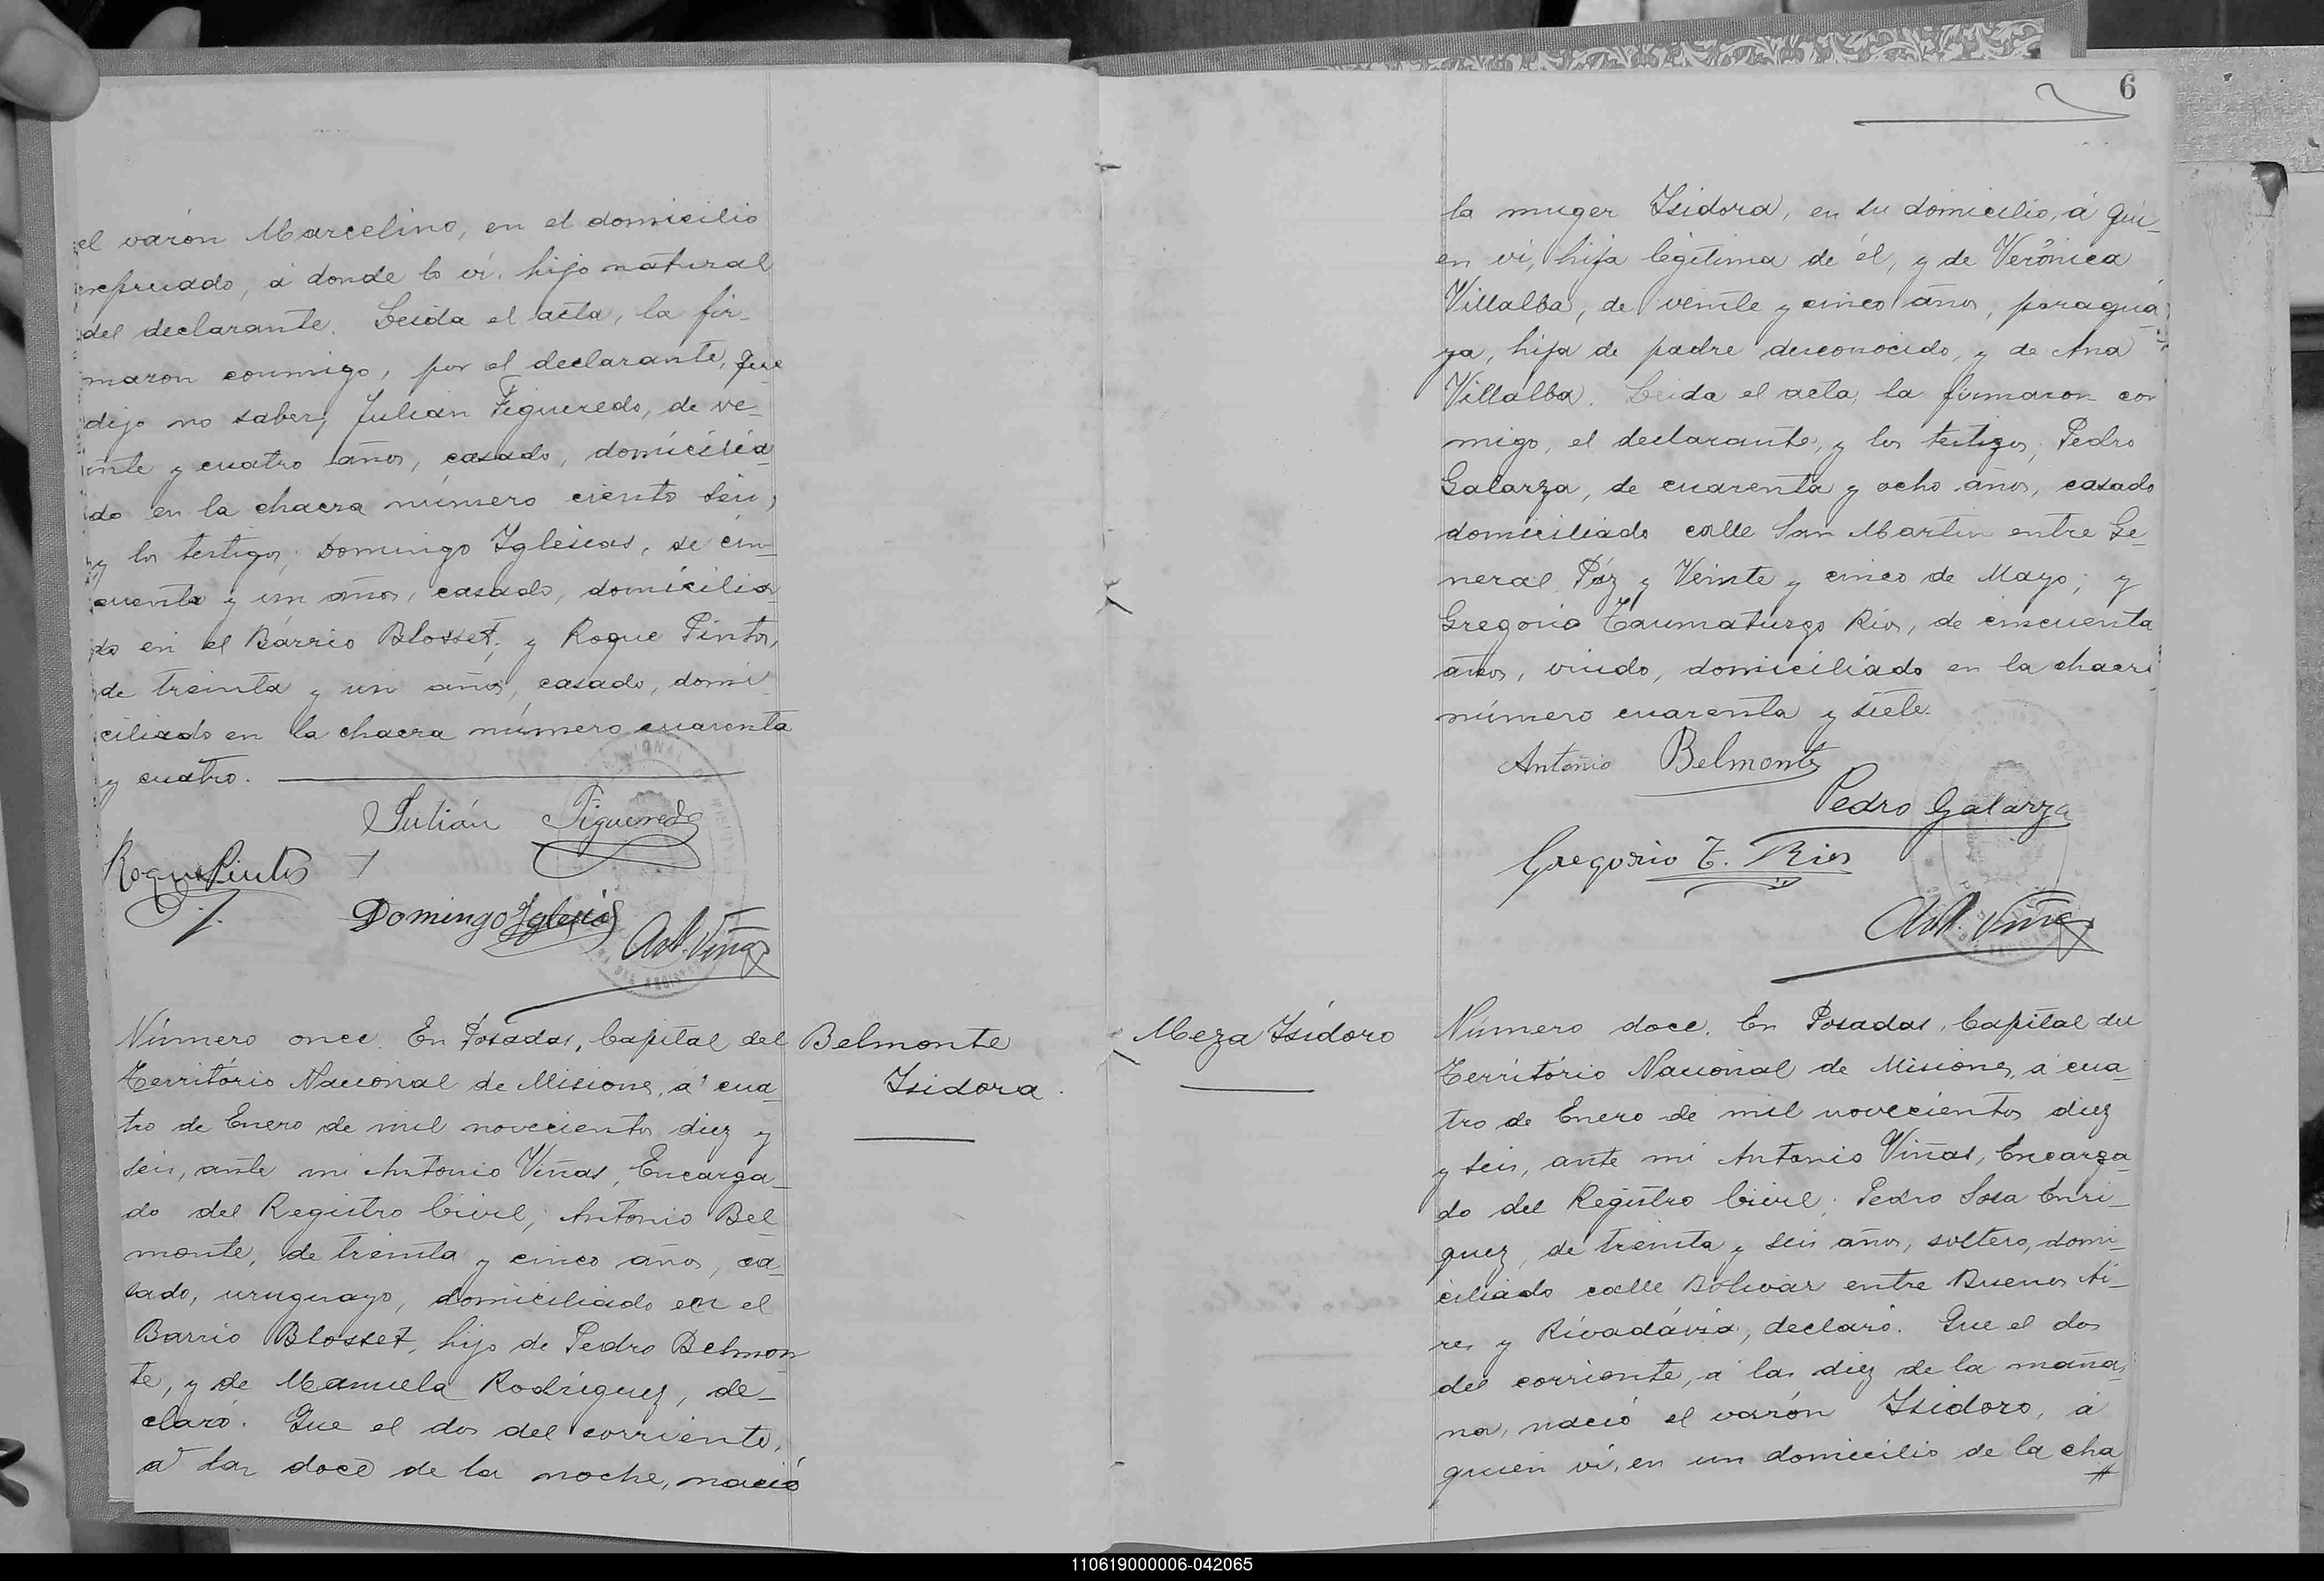 el varón Marcelino, en el domicilio
expresado, á donde lo ví, hijo natural
del declarante. Leida el acta, la fir-
maron conmigo, por el declarante, que
dijo no saber, Julián Figueredo, de ve-
inte y cuatro años, casado, domicilia-
do en la chacra número ciento seis,
y los testigos, Domingo Iglesias, de cin-
cuenta y un años, casado, domicilia-
do en el Barrio Blosset, y Roque Pintos,
de treinta y un años, casado, domi-
ciliado en la chacra número cuarenta
y cuatro.
Julián Figueredo
Roque Pintos
Domingo Iglesias
Ant. Viñas
Número once. En Posadas, Capital del
Territorio Nacional de Misiones, á cua-
tro de Enero de mil novecientos diez y
seis, ante mi Antonio Viñas, Encarga-
do del Registro Civil, Antonio Bel-
monte, de treinta y cinco años, ca-
sado, uruguayo, domiciliado en el
Barrio Blosset, hijo de Pedro Belmon
te, y de Manuela Rodriguez, de-
claró. Que el dos del corriente,
á las doce de la noche, nació
Belmonte
Isidora.
6
la muger Isidora, en su domicilio, á qui-
en ví, hija legítima de él, y de Verónica
Villalba, de veinte y cinco años, paragua-
ya, hija de padre desconocido, y de Ana
Villalba. Leida el acta, la firmaron con
migo, el declarante, y los testigos, Pedro
Galarza, de cuarenta y ocho años, casado
domiciliado calle San Martin entre Ge-
neral Páz y Veinte y cinco de Mayo; y
Gregorio Taumaturgo Rios, de cincuenta
años, viudo, domiciliado en la chacra
número cuarenta y siete.
Antonio Belmonte
Pedro Galarza
Gregorio T. Rios
Ant. Viñas
Meza Isidoro
Número doce. En Posadas, Capital del
Territorio Nacional de Misiones, á cua-
tro de Enero de mil novecientos diez
y seis, ante mi Antonio Viñas, Encarga-
do del Registro Civil, Pedro Sosa Enri-
quez, de treinta y seis años, soltero, domi-
ciliado calle Bolivar entre Buenos Ai-
res y Rivadávia, declaró. Que el dos
del corriente, á las diez de la maña-
na, nació el varón Isidoro, á
quien ví, en un domicilio de la cha
110619000006-042065